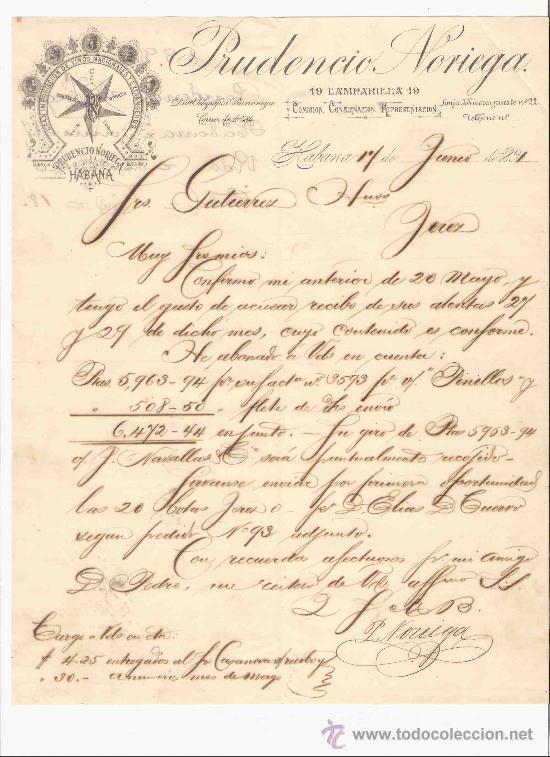 Prudencio Noriega.
GRAN IMPORTACION DE VINOS NACIONALES Y EXTRANGEROS
PRUDENCIO NORIEGA
HABANA
19 LAMPARILLA 19
COMISION, CONSIGNACION, REPRESENTACION
Correo
Teléfono nº
Habana 17 de Junio de 1891
Srs. Gutierrez Hnos
Jerez
Muy Sres mios:
Confirmo mi anterior de 20 Mayo, y
tengo el gusto de acusar recibo de sus atentas 27
y 29 de dicho mes, cuyo contenido es conforme.
He abonado a Vds en cuenta:
Ptas 5,963-94 pr su facta nº 3593 pr v/ "Pinillos" y
" 508-50 " flete de dho envio
6,472-44 en junto. - Su giro de Ptas 5963-94
o/ J. Navallas & Cª será puntualmente acojido
Sirvanse enviar por primera oportunidad
las 20 Botas Jerez D. Elias D. Cuervo
segun pedido Nº 93 adjunto.
Con recuerdo afectuosos pr mi amigo
D. Pedro, me reitero de Vds affmo S.S.
Q. B.
P. Noriega
Cargo a Vds en cta:
$ 4.25 entregados al Sr Casanova s/recibo y
" 30.- anuncio mes de mayo
todocoleccion.net
www.todocoleccion.net